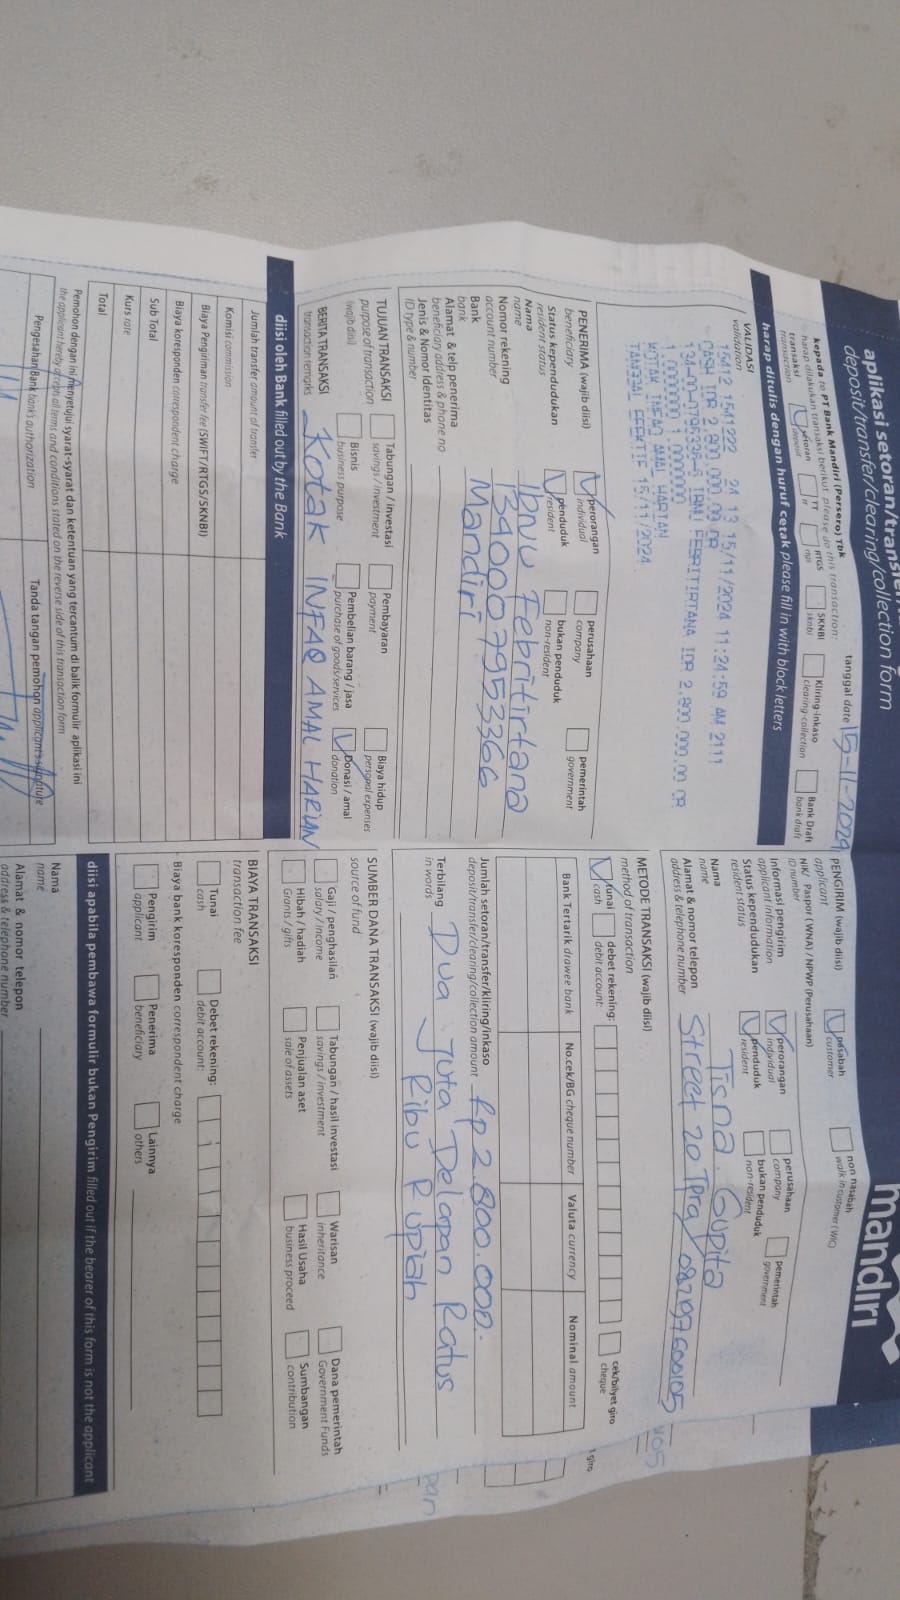 aplikasi setoran/transfer
deposit/transfer/clearing/collection form
mandiri
kepada to PT Bank Mandiri (Persero) Tbk
tanggal date 15-11-2024
harap dilakukan transaksi berikut please do this transaction:
transaksi
transaction
setoran
deposit
TT
RTGS
SKNBI
sknbi
Kliring-Inkaso
clearing-collection
Bank Draft
bank draft
harap ditulis dengan huruf cetak please fill in with block letters
VALIDASI
validation
24 13 15/11/2024 11:24:59 AM 2111
CASH IDR 2.800.000,00 CR
IBNU FEBRITIRTANA IDR 2.800.000,00 CR
KOTAK INFAQ AMAL HARIAN
TANGGAL EFEKTIF 15/11/2024
PENERIMA (wajib diisi)
beneficiary
perorangan
individual
perusahaan
company
pemerintah
government
Status kependudukan
resident status
penduduk
resident
bukan penduduk
non-resident
Nama
name
Ibnu Febritirtana
Nomor rekening
account number
1340007953366
Bank
bank
Mandiri
Alamat & telp penerima
beneficiary address & phone no
Jenis & Nomor Identitas
ID type & number
TUJUAN TRANSAKSI
purpose of transaction
(wajib diisi)
Tabungan / investasi
savings / investment
Pembayaran
payment
Biaya hidup
personal expenses
Bisnis
business purpose
Pembelian barang / jasa
purchase of goods/services
Donasi / amal
donation
BERITA TRANSAKSI
transaction remarks
Kotak INFAQ AMAL HARIAN
diisi oleh Bank filled out by the Bank
Jumlah transfer amount of transfer
Komisi commission
Biaya Pengiriman transfer fee (SWIFT/RTGS/SKNBI)
Biaya koresponden correspondent charge
Sub Total
Kurs rate
Total
Pemohon dengan ini menyetujui syarat-syarat dan ketentuan yang tercantum di balik formulir aplikasi ini
the applicant hereby accepts all terms and conditions stated on the reverse side of this transaction form
Pengesahan Bank bank's authorization
Tanda tangan pemohon applicant's signature
PENGIRIM (wajib diisi)
applicant
nasabah
customer
non nasabah
walk in customer (WIC)
NIK/ Paspor (WNA) / NPWP (Perusahaan)
ID number
Informasi pengirim
applicant information
perorangan
individual
perusahaan
company
pemerintah
government
Status kependudukan
resident status
penduduk
resident
bukan penduduk
non-resident
Nama
name
Tisna. Gupita
Alamat & nomor telepon
address & telephone number
METODE TRANSAKSI (wajib diisi)
method of transaction
tunai
cash
debet rekening:
debit account:
cek/bilyet giro
cheque
Bank Tertarik drawee bank
No.cek/BG cheque number
Valuta currency
Nominal amount
Jumlah setoran/transfer/kliring/inkaso
deposit/transfer/clearing/collection amount
Rp 2.800.000.
Terbilang
in words
Dua Juta Delapan Ratus
Ribu Rupiah
SUMBER DANA TRANSAKSI (wajib diisi)
source of fund
Gaji / penghasilan
salary / income
Tabungan / hasil investasi
savings / investment
Warisan
inheritance
Dana pemerintah
Government Funds
Hibah / hadiah
Grants / gifts
Penjualan aset
sale of assets
Hasil Usaha
business proceed
Sumbangan
contribution
BIAYA TRANSAKSI
transaction fee
Tunai
cash
Debet rekening:
debit account:
Biaya bank koresponden correspondent charge
Pengirim
applicant
Penerima
beneficiary
Lainnya
others
diisi apabila pembawa formulir bukan Pengirim filled out if the bearer of this form is not the applicant
Nama
name
Alamat & nomor telepon
address & telephone number